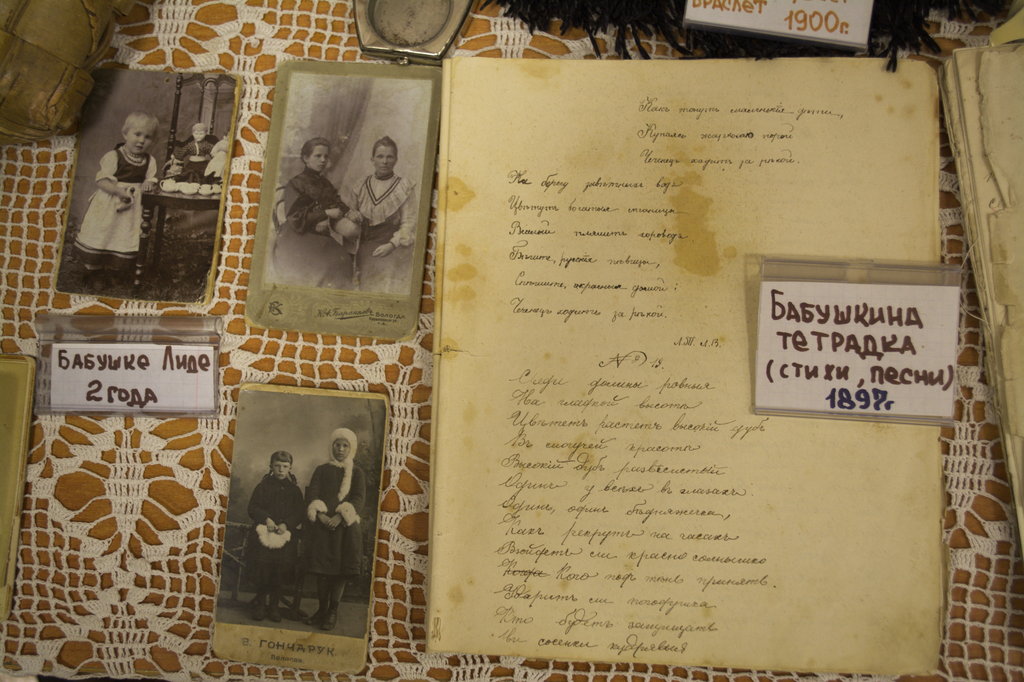 БРАСЛЕТ
1900г.
Какъ
дѣти,
Купаясь жаркою порой
Чеченецъ ходитъ за рѣкой.
На берегу завѣтныхъ водъ
Цвѣтутъ богатыя станицы
Веселый пляшетъ хороводъ
Бѣгите, русскія пѣвицы,
Спѣшите, красныя домой:
Чеченецъ ходитъ за рѣкой.
№ 13.
Среди долины ровныя
На гладкой высотѣ
Цвѣтетъ растетъ высокій дубъ
Въ могучей красотѣ
Высокій дубъ развѣсистый
Одинъ у всѣхъ въ глазахъ
Одинъ, одинъ бѣдняжечка,
Какъ рекрутъ на часахъ
Взойдетъ ли красно солнышко
Кого подъ тѣнь принять.
Ударитъ ли погодушка
Кто будетъ защищать
Ни сосенки кудрявыя
БАБУШКИНА
ТЕТРАДКА
(СТИХИ, ПЕСНИ)
1897г
БАБУШКЕ ЛИДЕ
2 ГОДА
Вологда
В. ГОНЧАРУК
Вологда